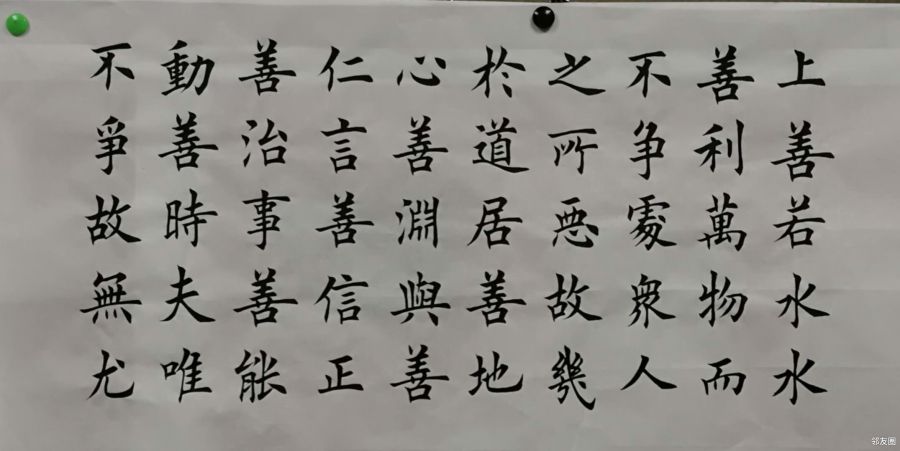 上善若水水
善利萬物而
不争處衆人
之所惡故幾
於道居善地
心善淵與善
仁言善信正
善治事善能
動善時夫唯
不爭故無尤
邻友圈